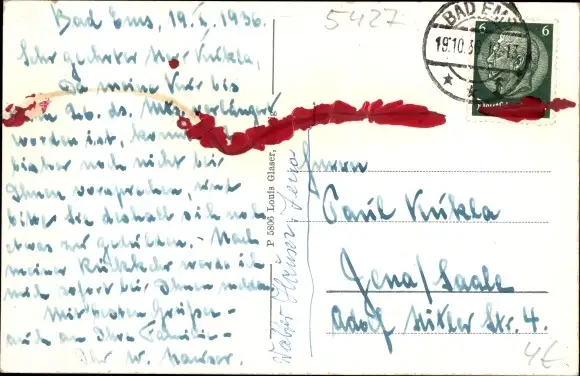 Bad Ems, 19.X.1936.
Sehr geehrter Herr Kukla,
Da meine Kur bis
zum 26. ds. Mts. verlängert
worden ist, konnte ich
bisher noch nicht bei
Ihnen vorsprechen, und
bitte Sie deshalb sich noch
etwas zu gedulden. Nach
meiner Rückkehr werde ich
mich sofort bei Ihnen melden
Mit besten Grüßen
auch an Ihre Familie
Ihr W. Hauser.
P 5806 Louis Glaser,
5427
BAD EMS
19.10.36
6
Herrn
Paul Kukla
Jena/Saale
Adolf Hitler Str. 4.
4£